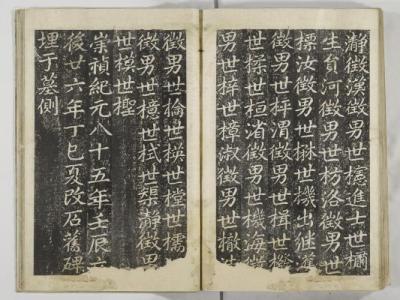 瀞徵漢徵男世檍進士世橚
生員河徵男世枋洛徵男世
標汝徵男世楙世機出継瀁
徵男世枰渭徵男世楫世橃
世楺世桓淯徵男世機海徵
男世梓世樟淑徵男世橵世
徵男世棆世模世樘世檽
徵男世檍世栻世榘瀞徵男
世模世檉
崇禎紀元八十五年壬辰立
後廿六年丁巳夏改石舊碑
埋于墓側